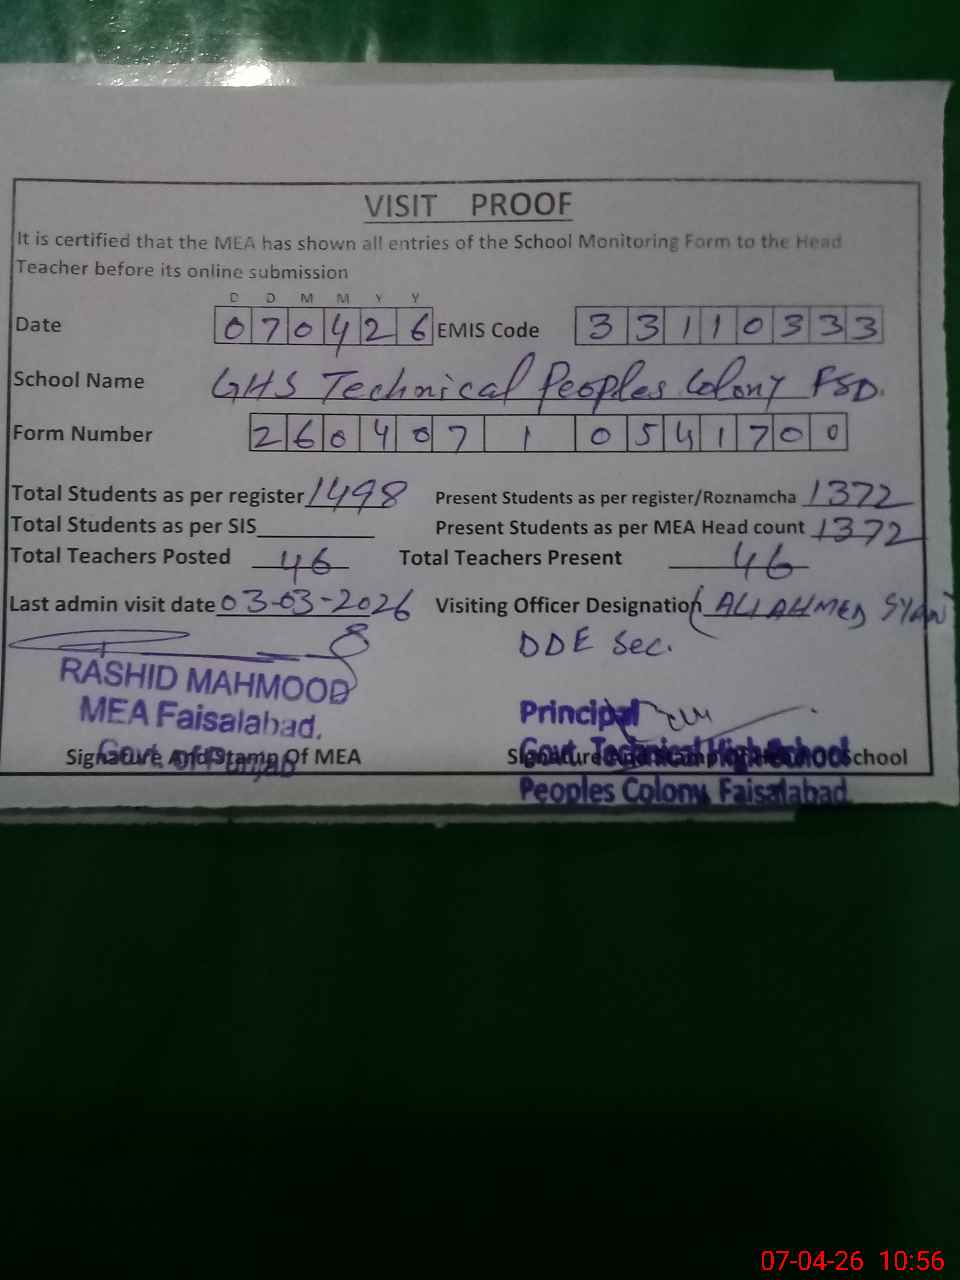 VISIT PROOF
It is certified that the MEA has shown all entries of the School Monitoring Form to the Head
Teacher before its online submission
D D M M Y Y
Date 0 7 0 4 2 6 EMIS Code 3 3 1 1 0 3 3 3
School Name GHS Technical Peoples Colony FSD.
Form Number 2 6 0 4 0 7 1 0 5 4 1 7 0 0
Total Students as per register 1498 Present Students as per register/Roznamcha 1372
Total Students as per SIS Present Students as per MEA Head count 1372
Total Teachers Posted 46 Total Teachers Present 46
Last admin visit date 03-03-2026 Visiting Officer Designation (ALI AHMED
DDE Sec.
RASHID MAHMOOD
MEA Faisalabad.
Govt. Of Punjab
Signature And Stamp Of MEA
Principal
Govt. Technical High School
Signature School
Peoples Colony, Faisalabad
07-04-26 10:56